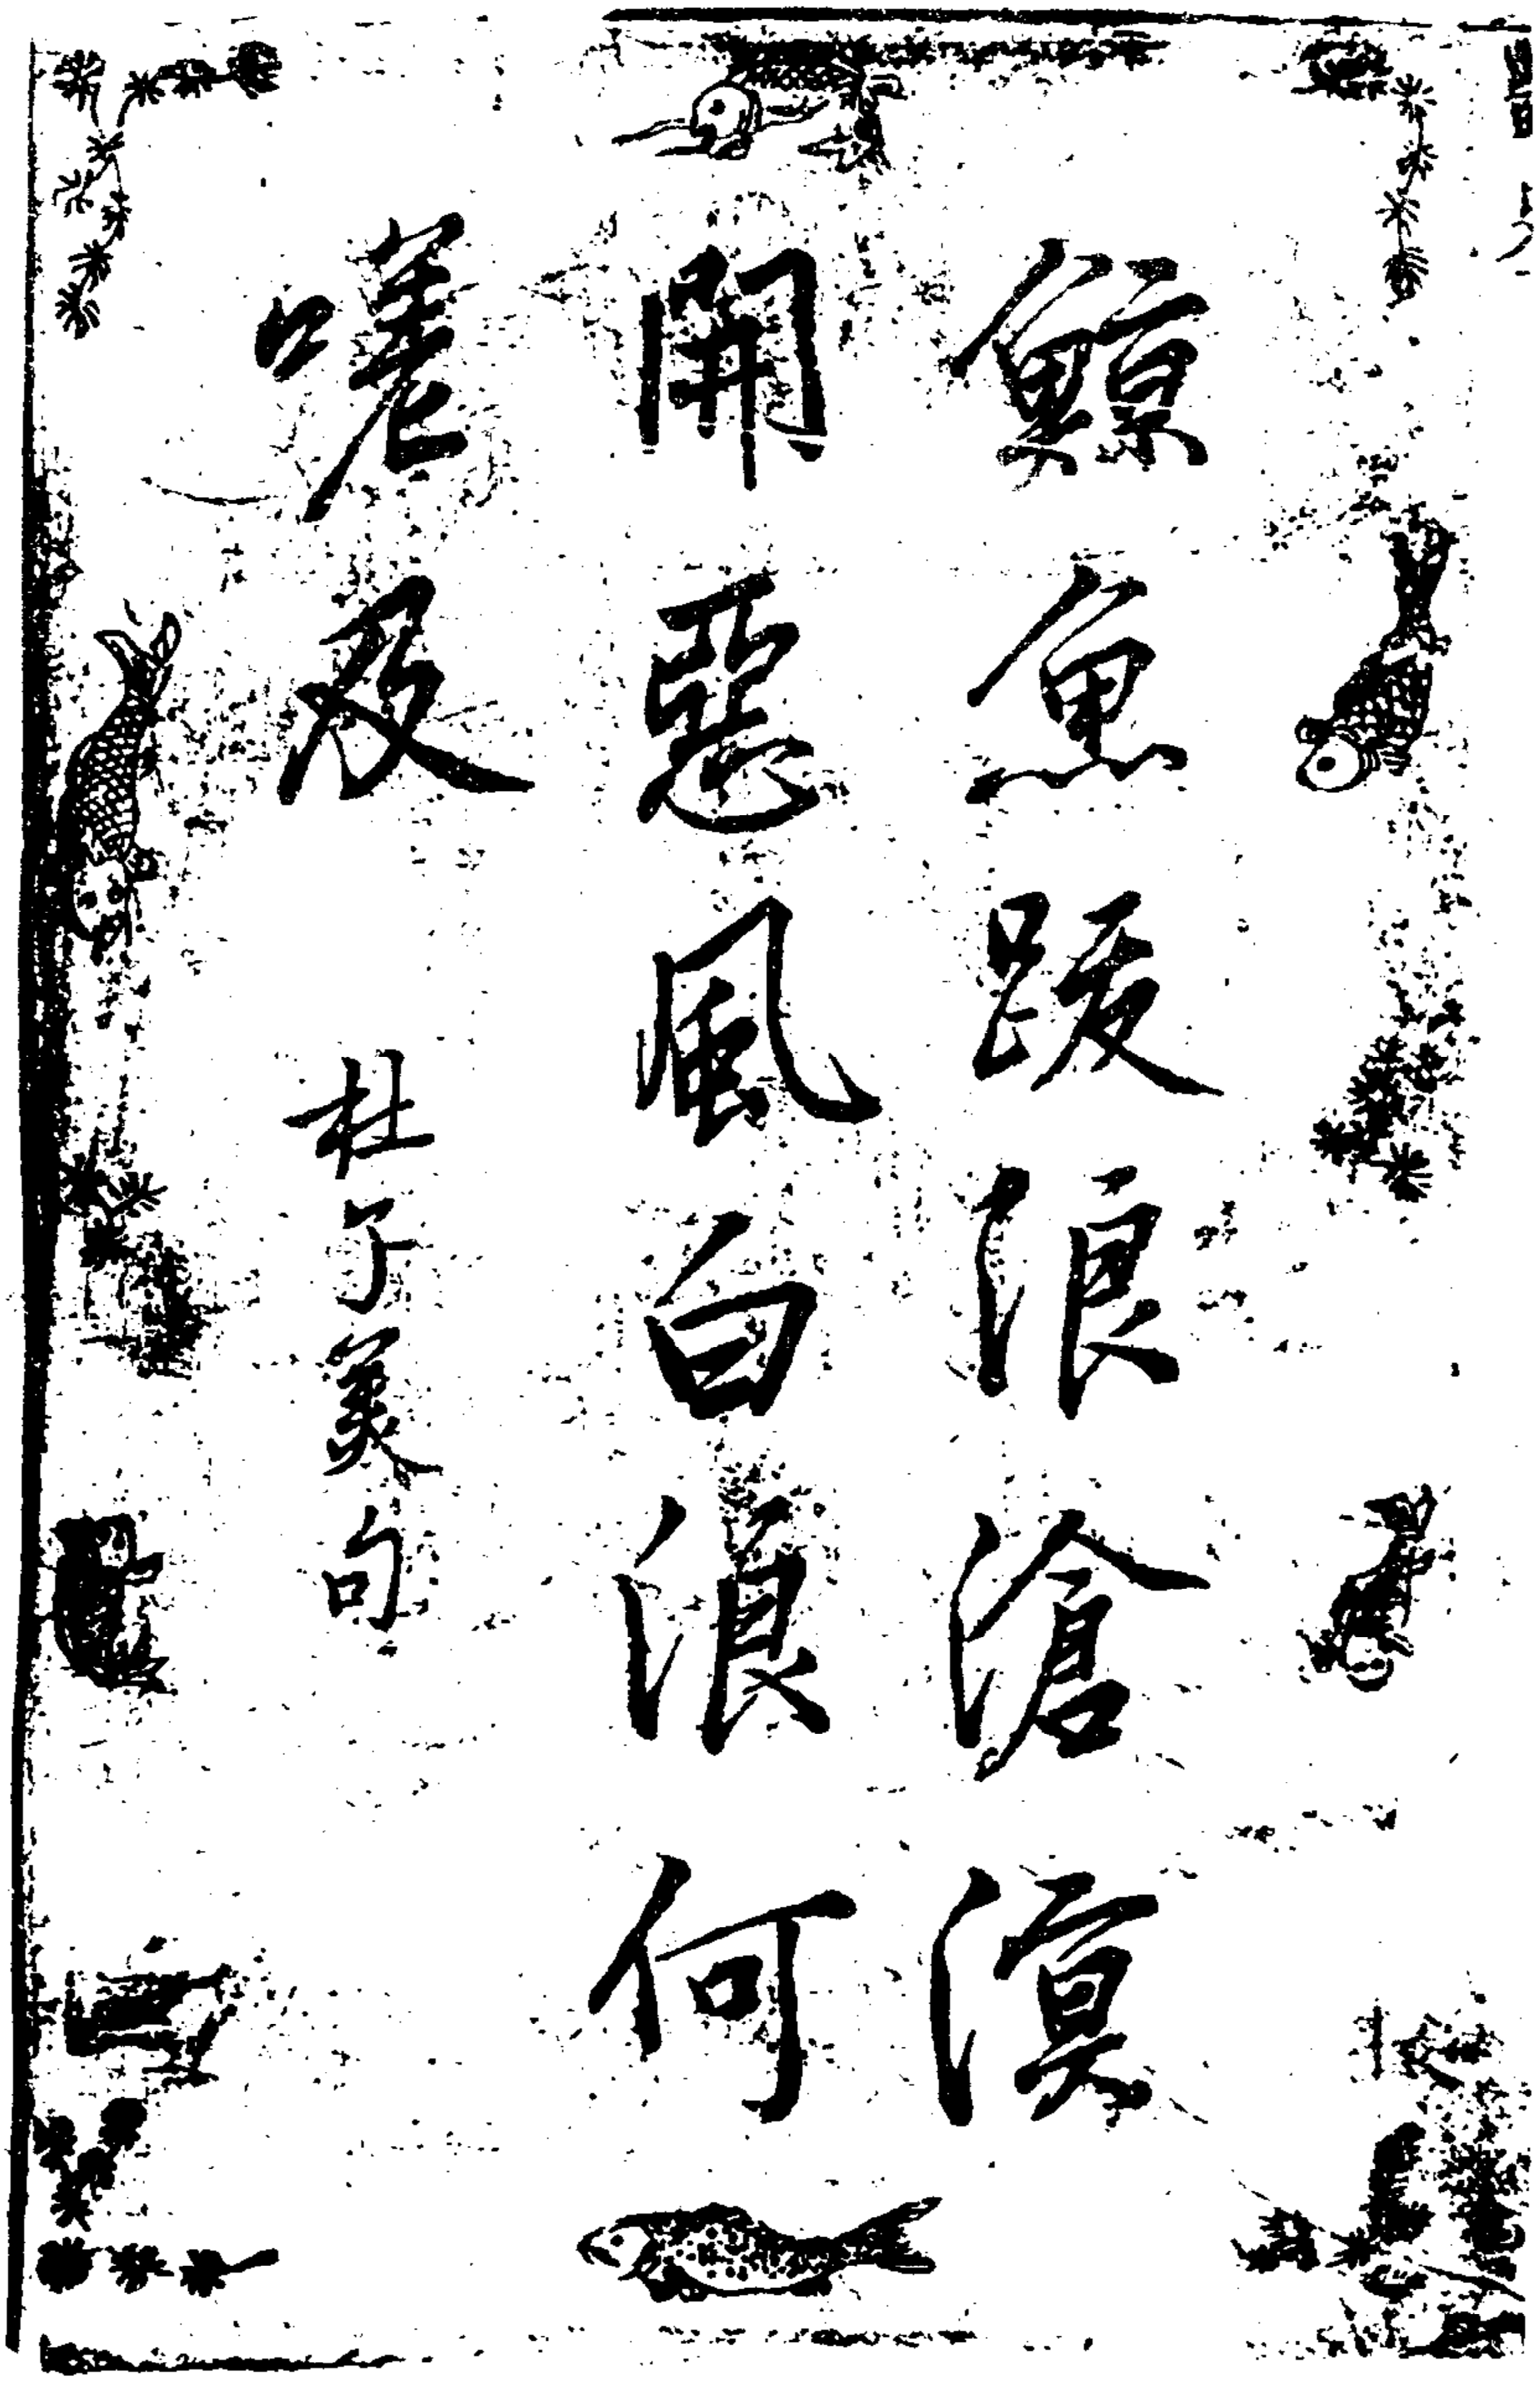 鯨魚跋浪滄溟
開惡風白浪何
嗟及
杜子美句